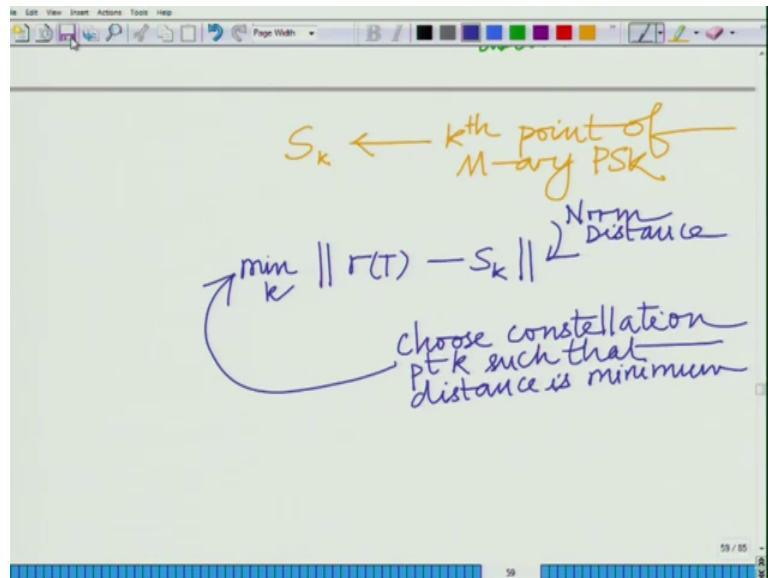 Edit View Insert Actions Tools Help
Page Width
B I
S_k ← kth point of
M-ary PSK
Norm
Distance
min ‖ r(T) − S_k ‖
k
choose constellation
pt k such that
distance is minimum
59 / 85
59